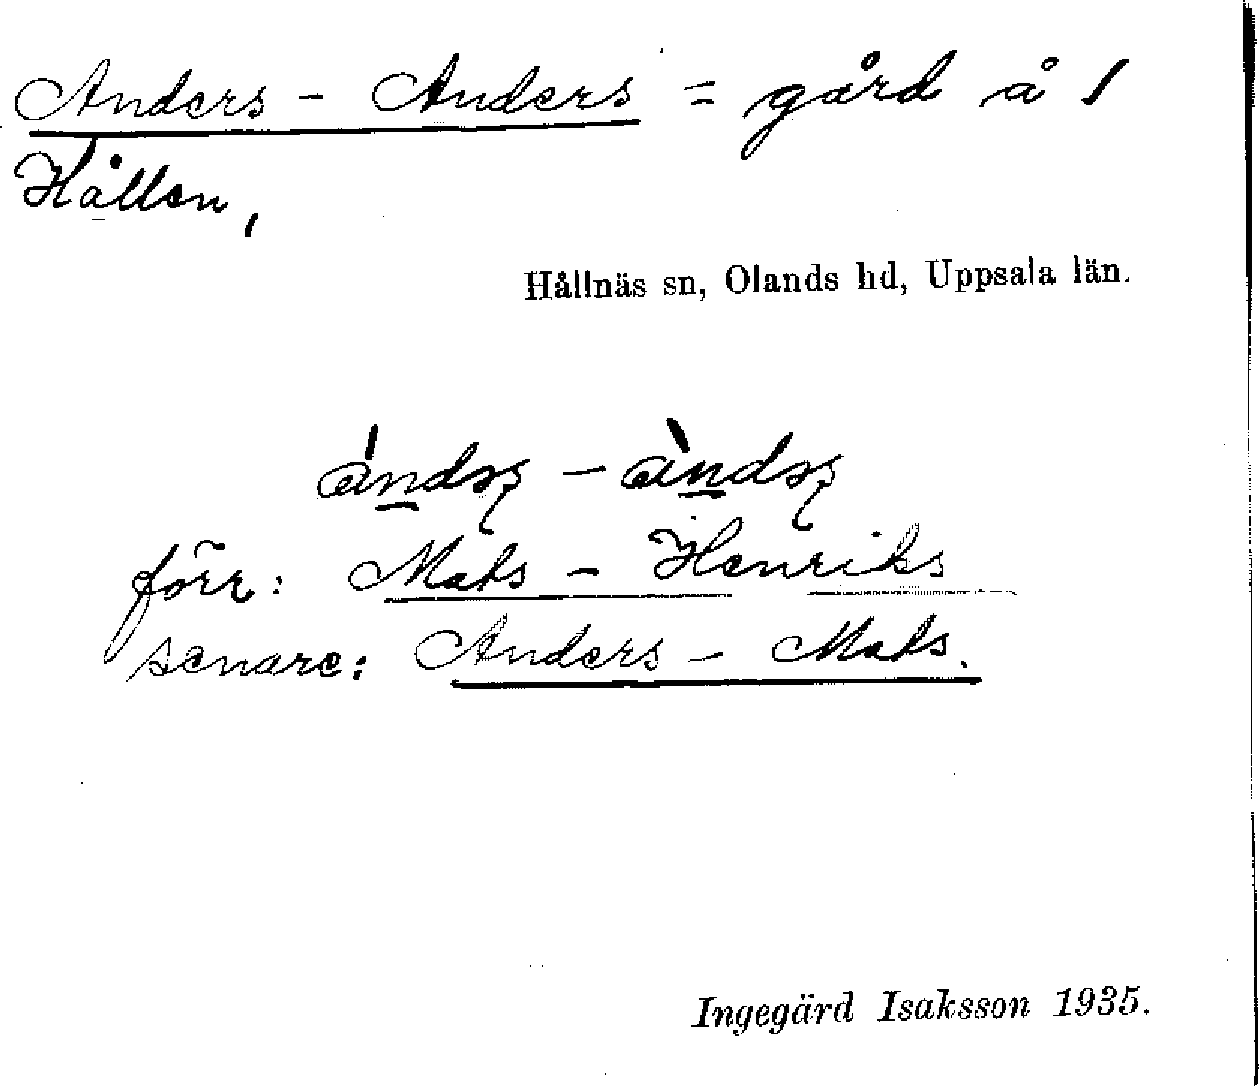 Anders - Anders = gård å 1
Hållen,
Hållnäs sn, Olands hd, Uppsala län.
förr: Mats - Henriks
senare: Anders - Mats.
Ingegärd Isaksson 1935.